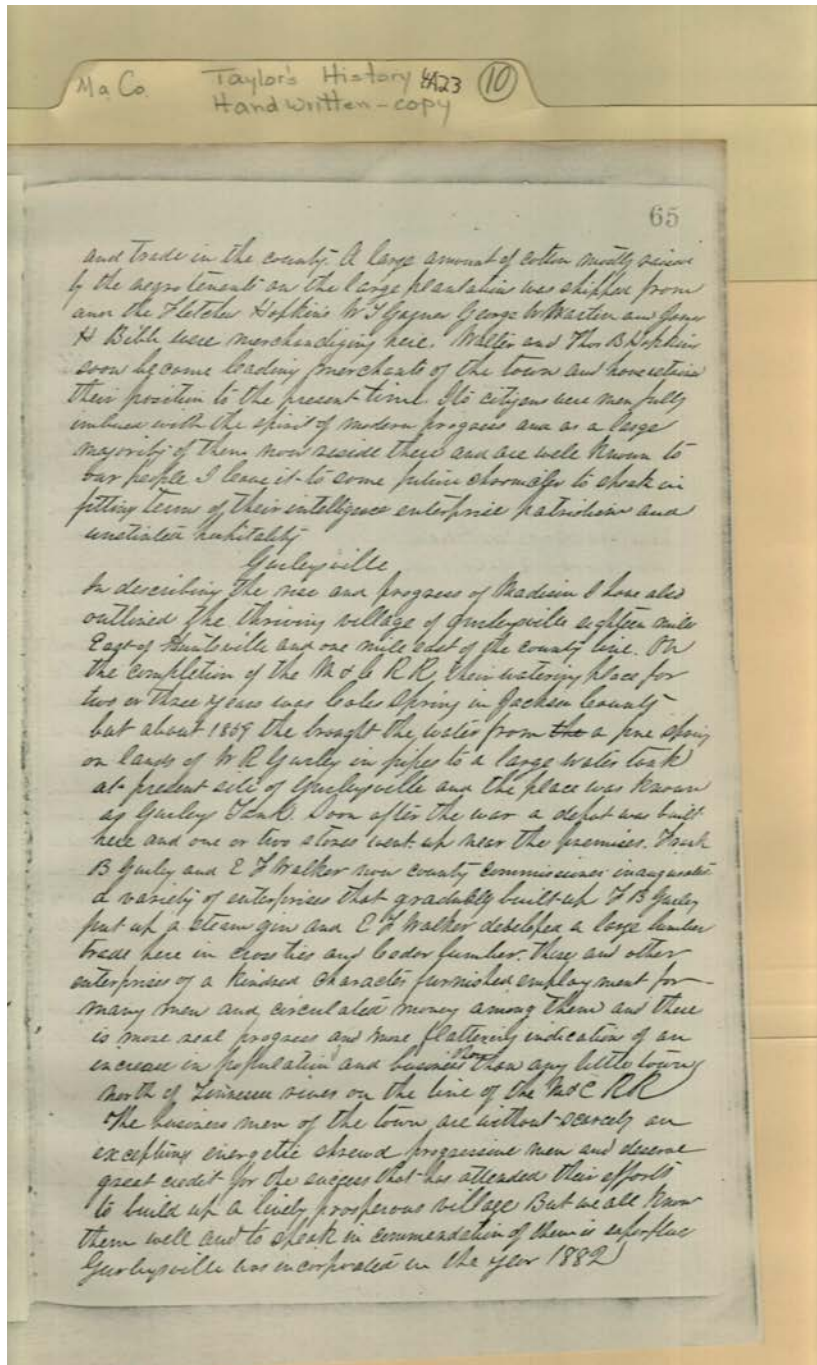 Ma. Co. Taylor's History 4A23 10
Handwritten - copy
65
and trade in the county. A large amount of cotton mostly
by the negro tenants on the large plantation was shipped from
and the Fletcher Hopkins W T Garner George W Martin and James
H Bibb were merchandizing here. Walter and Thos B Hopkins
soon became leading merchants of the town and have retained
their position to the present time. Its citizens were men fully
imbued with the spirit of modern progress and as a large
majority of them now reside there and are well known to
our people I leave it to some future chronicler to speak in
fitting terms of their intelligence enterprise patriotism and
unstinted hospitality
Gurleysville
In describing the rise and progress of Madison I have also
outlined the thriving village of Gurleysville eighteen miles
East of Huntsville and one mile east of the county line. On
the completion of the M & C RR, their watering place for
two or three years was Coles Spring in Jackson County
but about 1859 the brought the water from the a fine spring
on lands of W R Gurley in pipes to a large water tank
at present site of Gurleysville and the place was known
as Gurley Tank. Soon after the war a depot was built
here and one or two stores went up near the premises. Frank
B Gurley and E F Walker now county commissioner inaugurated
a variety of enterprises that gradually built up F B Gurley
put up a steam gin and E F Walker developed a large lumber
trade here in cross ties and Ceder lumber. These and other
enterprises of a kindred character furnished employment for
many men and circulated money among them and there
is more real progress and more flattering indication of an
increase in population and business than any little town
north of Tennessee river on the line of the M & C RR
The business men of the town are without scarcely an
exception energetic shrewd progressive men and deserve
great credit for the success that has attended their efforts
to build up a lively prosperous village But we all know
them well and to speak in commendation of them is
Gurleysville was incorporated in the year 1882